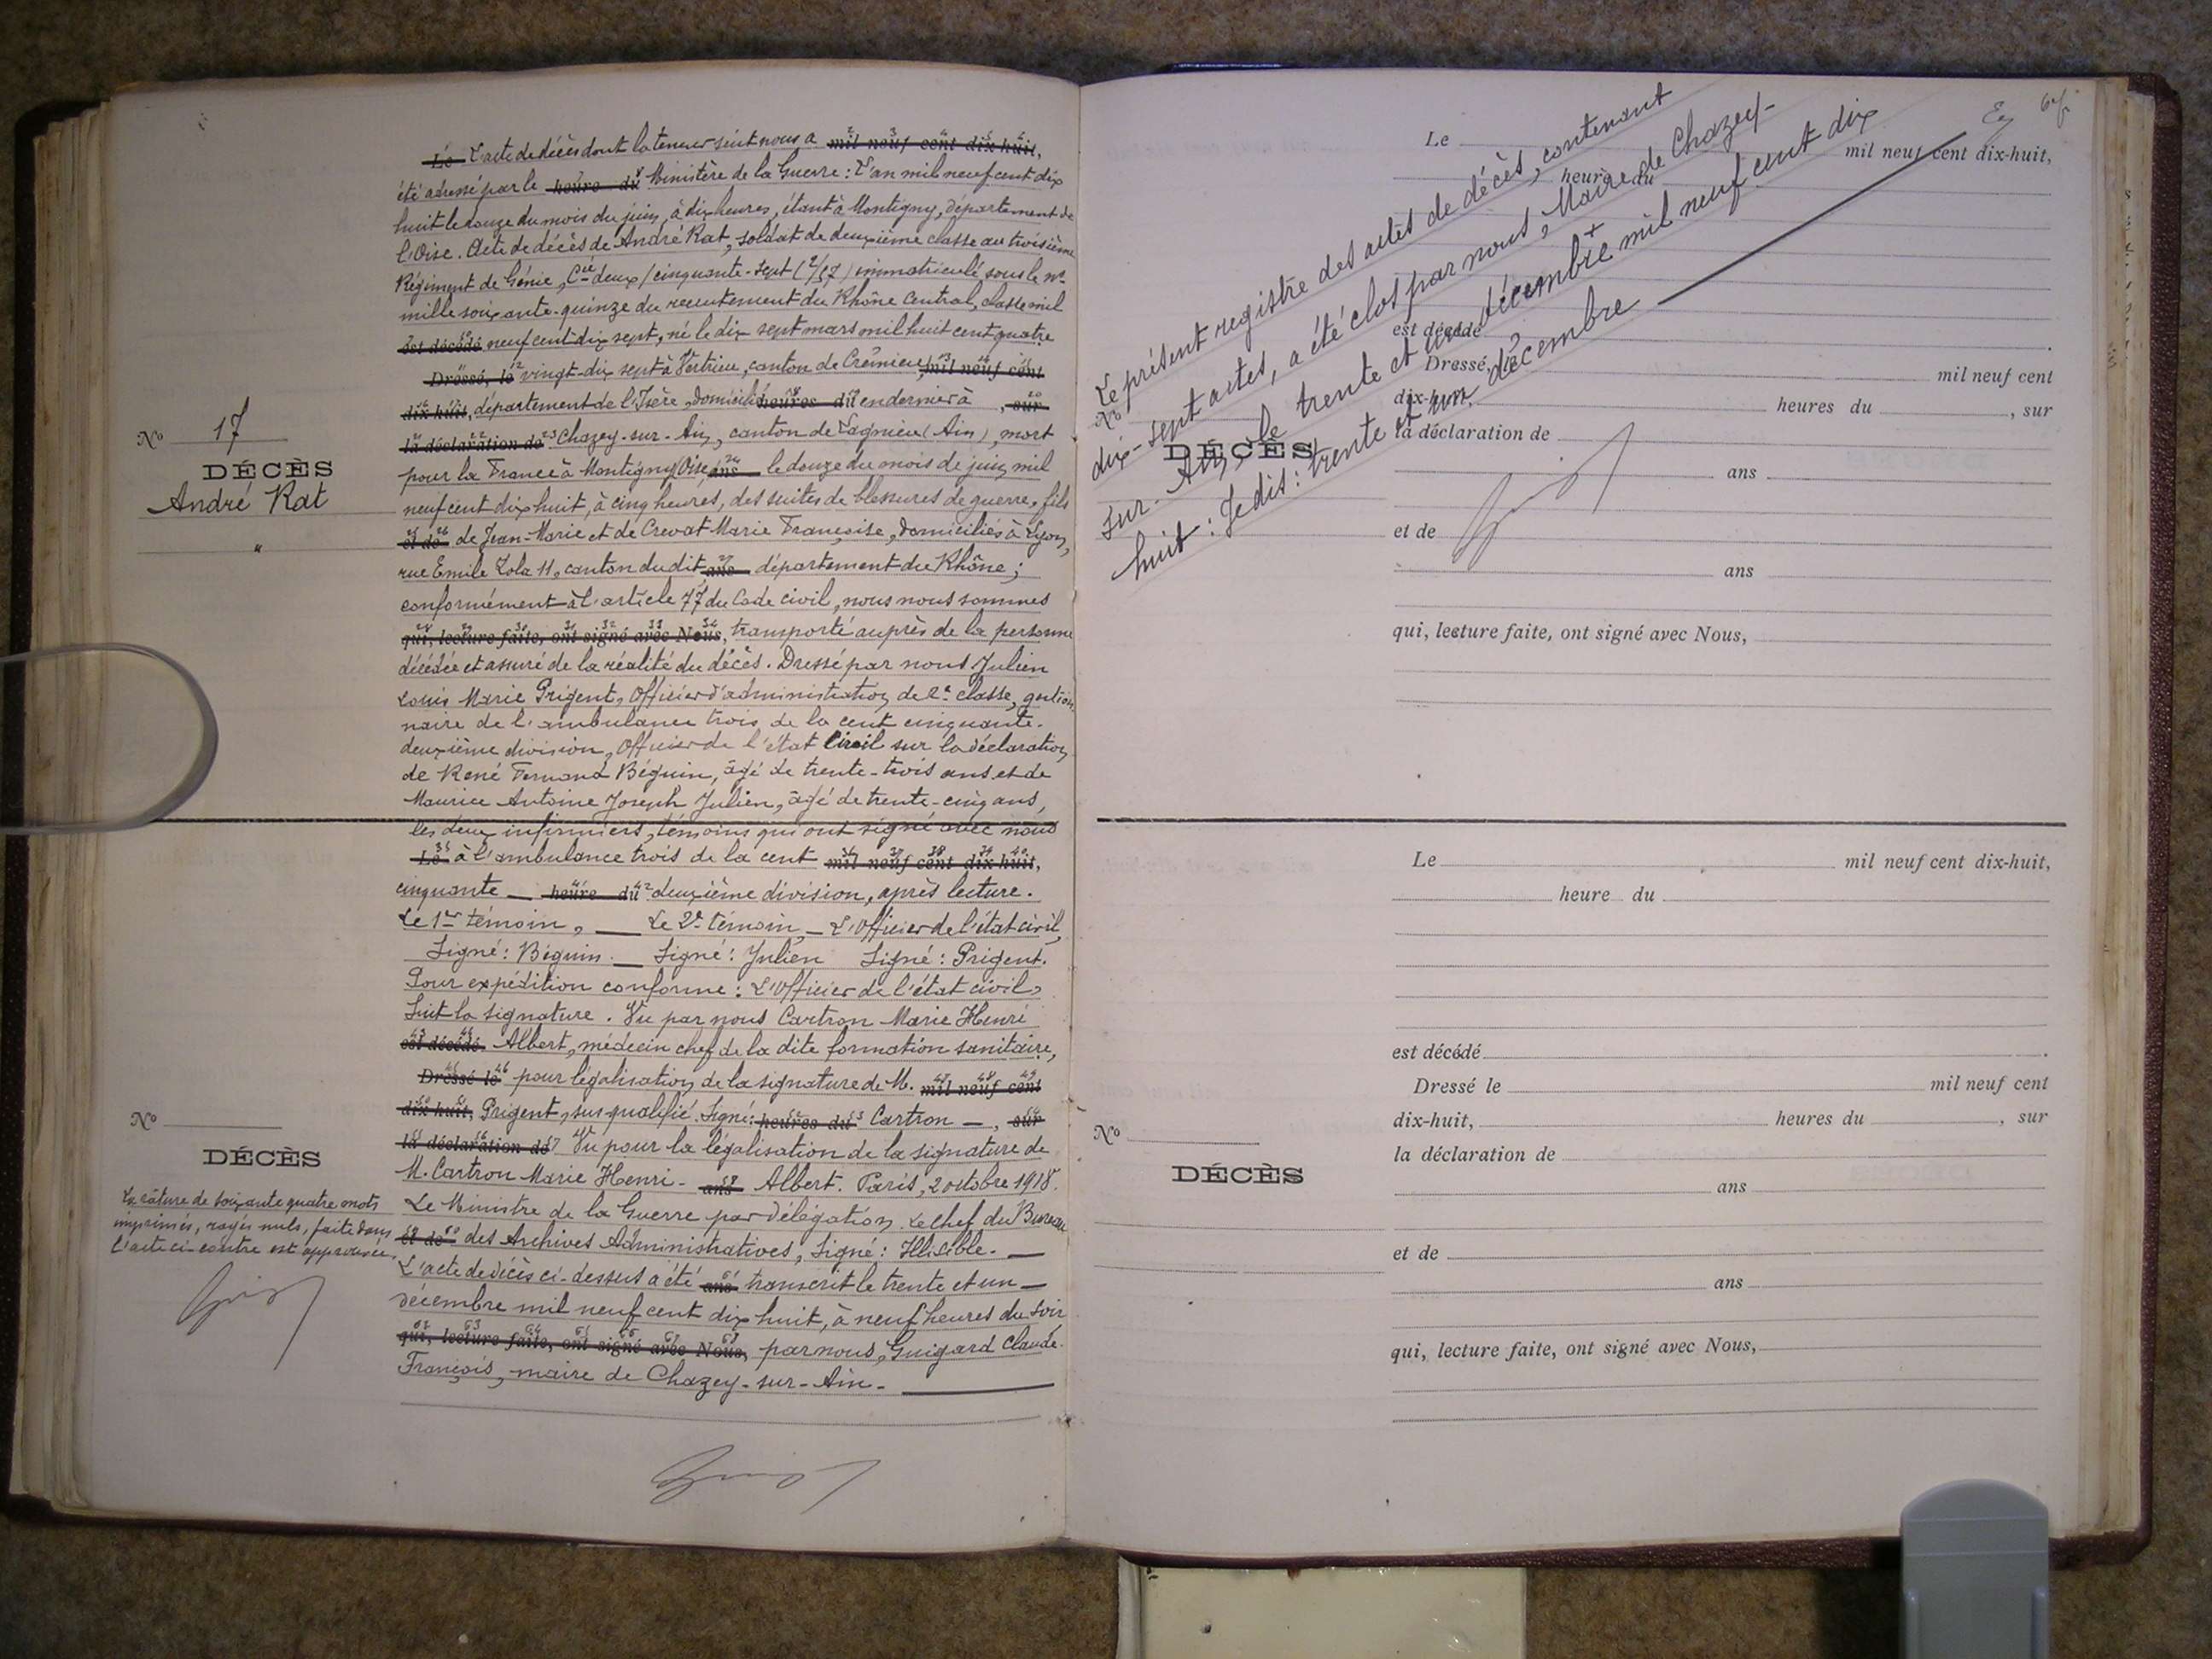 Le L'acte de décès dont la teneur suit nous a mil neuf cent dix-huit,
été adressé par le heure du Ministère de la Guerre : L'an mil neuf cent dix
huit le douze du mois du juin, à dix heures, étant à Montigny, département de
l'Oise. Acte de décès de André Rat, soldat de deuxième classe au troisième
Régiment de Génie, Cie deux/cinquante-sept (2/57) immatriculé sous le no
mille soixante-quinze du recrutement du Rhône Central, classe mil
est décédé neuf cent dix sept, né le dix sept mars mil huit cent quatre
Dressé, le vingt-dix sept à Vertrieu, canton de Crémieu, mil neuf cent
dix-huit, département de l'Isère, domicilié heures du en dernier à , sur
la déclaration de Chazey-sur-Ain, canton de Lagnieu (Ain), mort
N° 17
DÉCÈS
André Rat
"
pour la France à Montigny (Oise) ans le douze du mois de juin mil
neuf cent dix huit, à cinq heures, des suites de blessures de guerre, fils
et de de Jean-Marie et de Crevat Marie Françoise, domiciliés à Lyon,
rue Emile Zola 11, canton du dit ans département du Rhône ;
conformément à l'article 77 du Code civil, nous nous sommes
qui, lecture faite, ont signé avec Nous, transporté auprès de la personne
décédée et assuré de la réalité du décès. Dressé par nous Julien
Louis Marie Prigent, Officier d'administration de 2e classe, gestion
naire de l'ambulance trois de la cent cinquante-
deuxième division, Officier de l'état civil sur la déclaration
de René Fernand Béguin, âgé de trente-trois ans et de
Maurice Antoine Joseph Julien, âgé de trente-cinq ans,
les deux infirmiers, témoins qui ont signé avec nous
Le à l'ambulance trois de la cent mil neuf cent dix-huit,
cinquante — heure du deuxième division, après lecture.
Le 1er témoin, — Le 2e témoin — L'Officier de l'état civil
Signé : Béguin. — Signé : Julien Signé : Prigent.
Pour expédition conforme : L'Officier de l'état civil,
Suit la signature. Vu par nous Cartron Marie Henri
est décédé Albert, médecin chef de la dite formation sanitaire,
Dressé le pour légalisation de la signature de M. mil neuf cent
dix-huit, Prigent, sus-qualifié. Signé : heures du Cartron — , sur
la déclaration de Vu pour la légalisation de la signature de
M. Cartron Marie Henri - ans Albert. Paris, 2 octobre 1918.
Le Ministre de la Guerre par délégation. Le Chef du Bureau
et de des Archives Administratives, Signé : Illisible. —
L'acte de décès ci-dessus a été ans transcrit le trente et un —
décembre mil neuf cent dix huit, à neuf heures du soir
qui, lecture faite, ont signé avec Nous, par nous, Guigard Claude-
François, maire de Chazey-sur-Ain.
N°
DÉCÈS
La râture de soixante quatre mots
imprimés, rayés nuls, faite dans
l'acte ci-contre est approuvée.
Le présent registre des actes de décès, contenant
dix-sept actes, a été clos par nous, Maire de Chazey-
sur-Ain, le trente et un décembre mil neuf cent dix
huit : Je dis : trente et un décembre
Le mil neuf cent dix-huit,
heure du
est décédé .
Dressé, mil neuf cent
dix-huit, heures du , sur
N°
la déclaration de
DÉCÈS
ans
et de
ans
qui, lecture faite, ont signé avec Nous,
Le mil neuf cent dix-huit,
heure du
est décédé .
Dressé le mil neuf cent
dix-huit, heures du , sur
N°
la déclaration de
DÉCÈS
ans
et de
ans
qui, lecture faite, ont signé avec Nous,